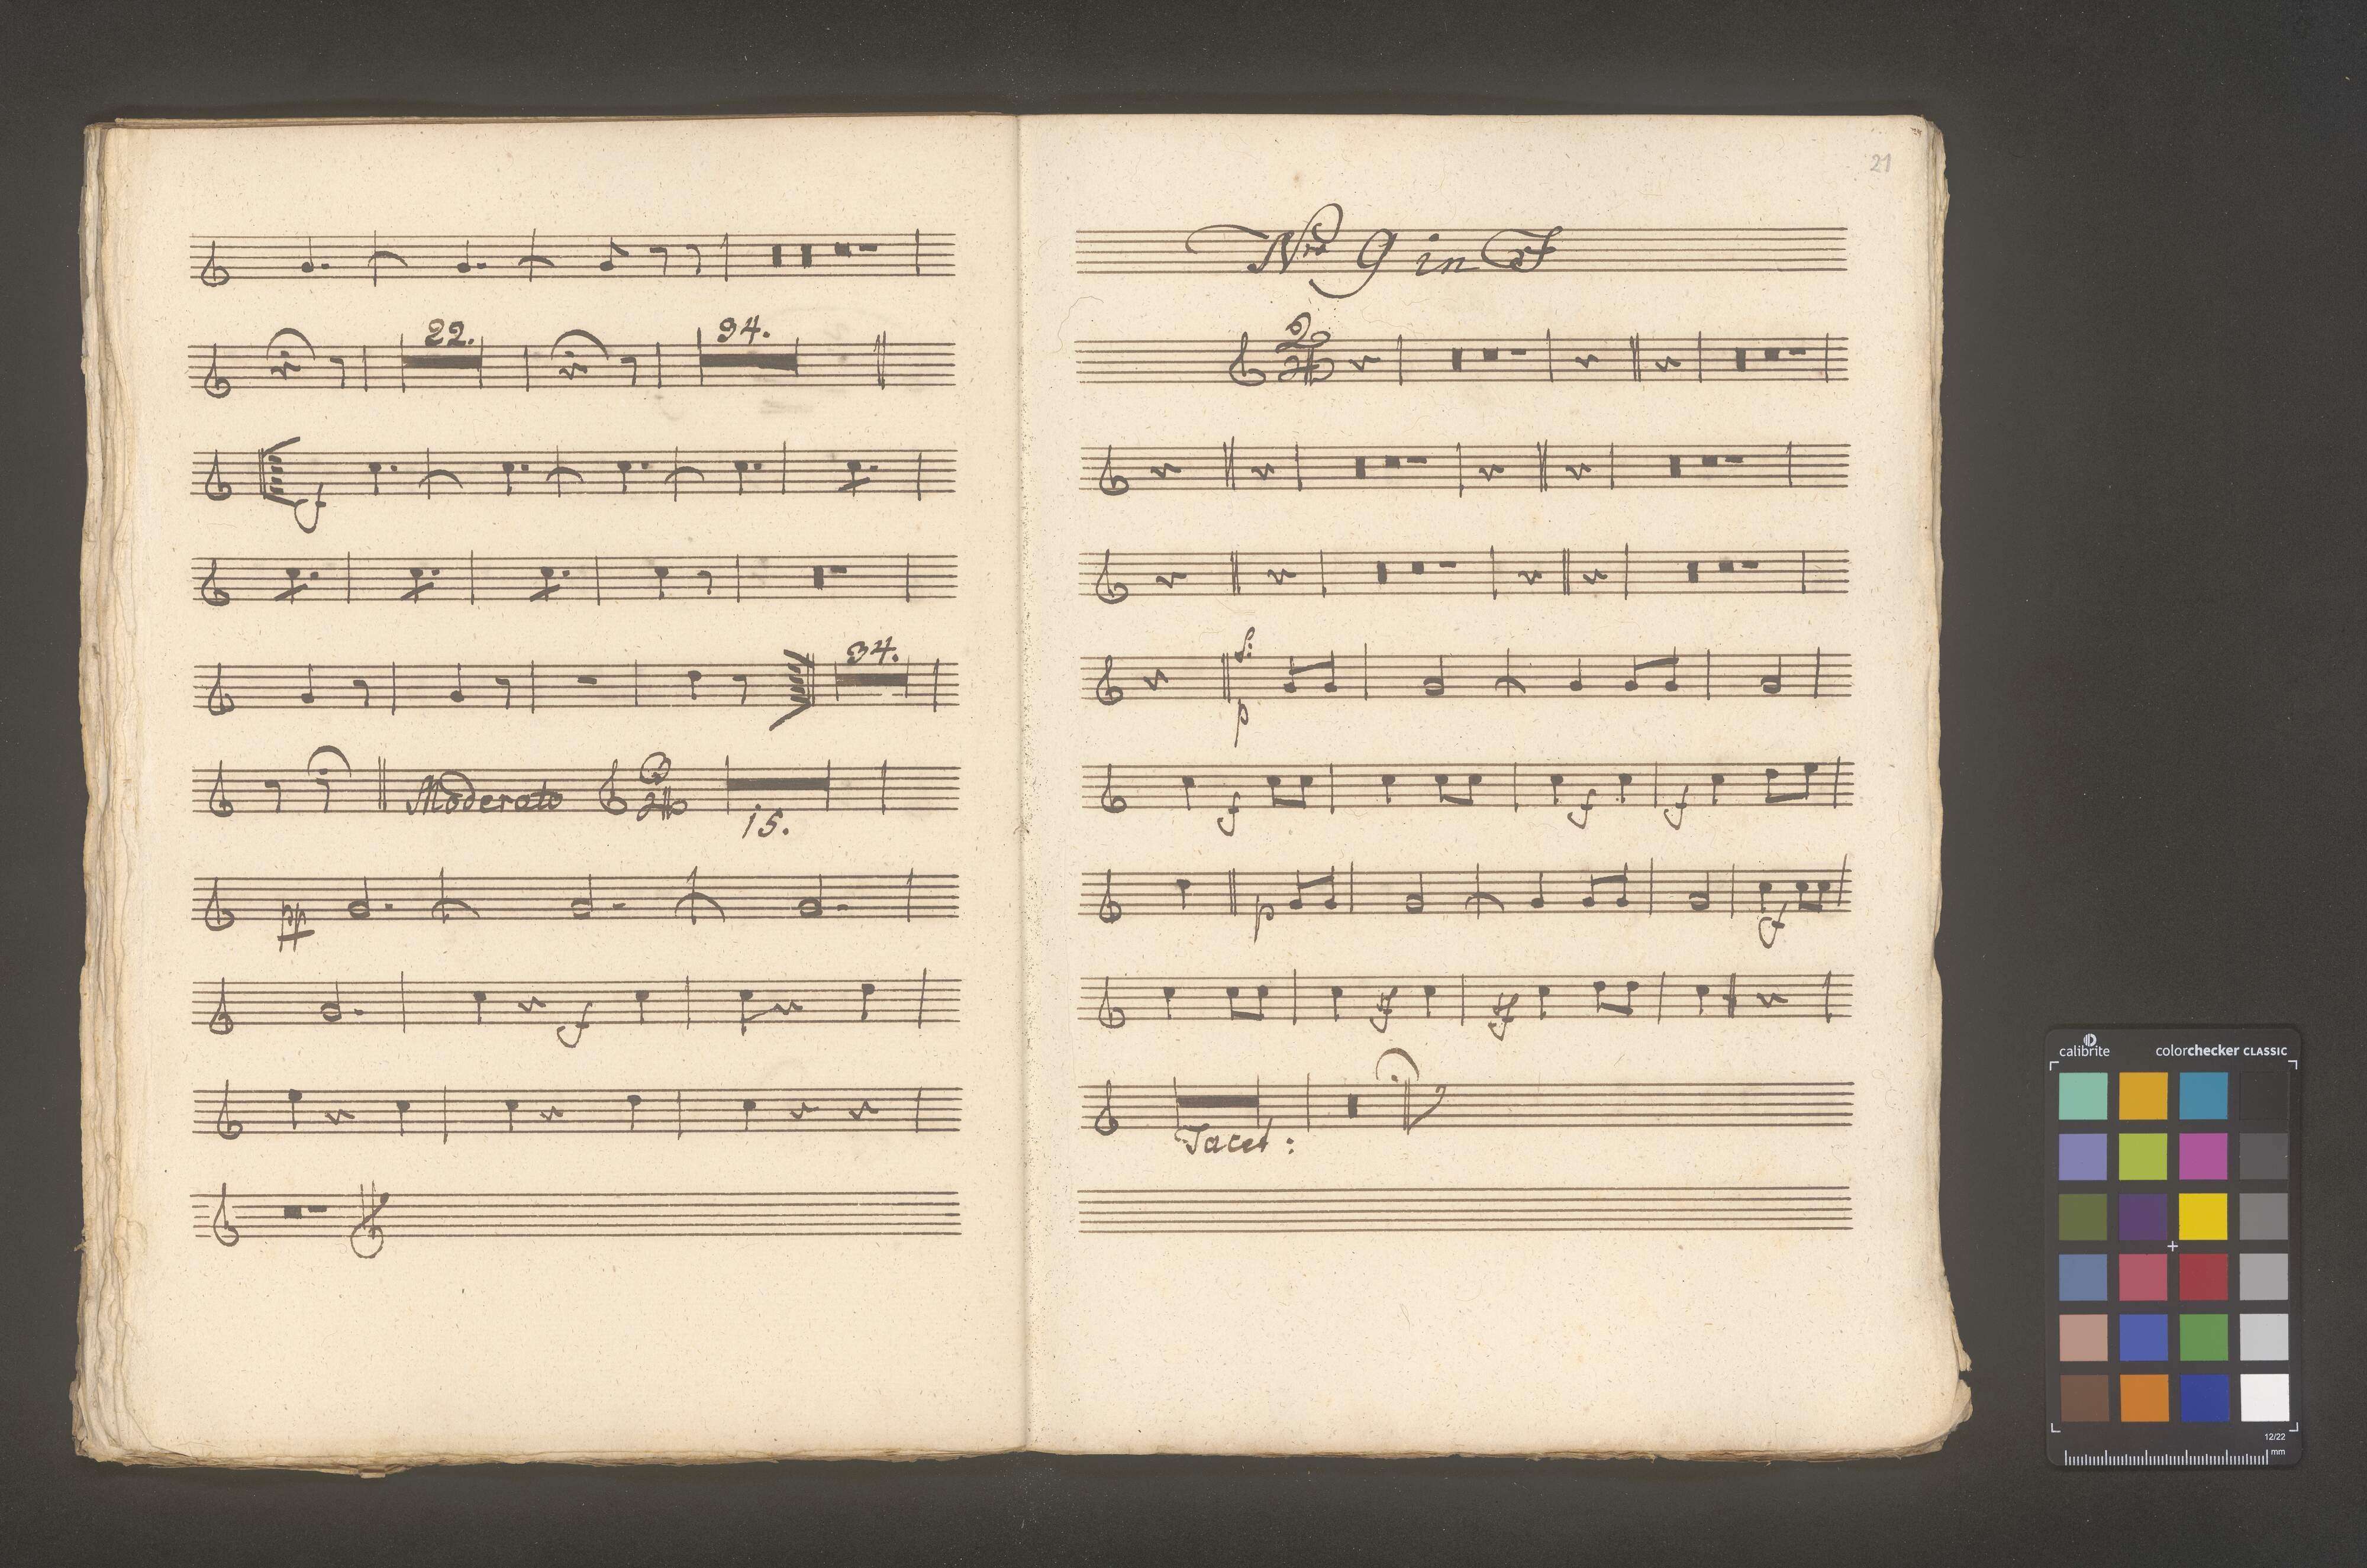 22. 34.
f
34.
Moderato 3/4 15.
pp
f
21
Nro 9 in F
2/4
f:
p
f f f
p f
ff ff
Tacet:
calibrite colorchecker CLASSIC
12/22
mm